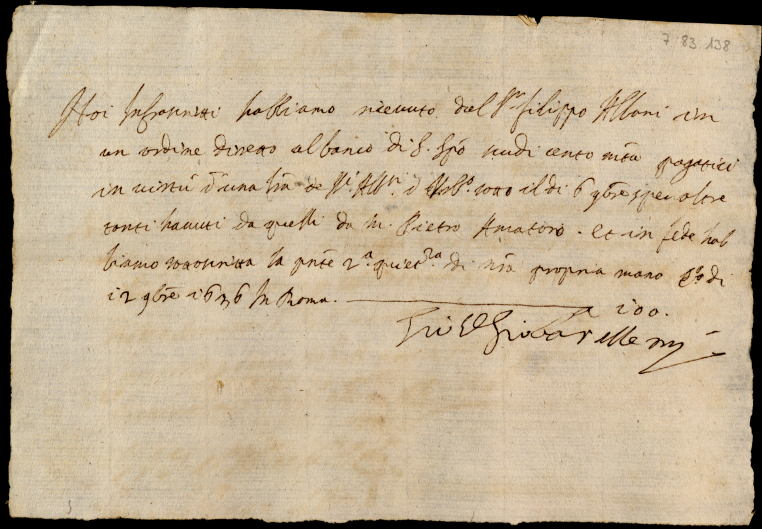 7 83 138
Noi Infrascritti habbiamo riceuuto dal Sr. filippo Albani in
un ordine diretto al banco di S. Spo scudi cento mta pagatici
in uirtù d'una lra de Sri. Albni. d'Urbo. sotto il di 6 9bre per altre
tanti hauuti da quelli da M. Pietro Amatori. Et in fede hab
biamo sottoscritta la pnte 2a quietza di nra propria mano di
12 9bre 1636 In Roma.
100.